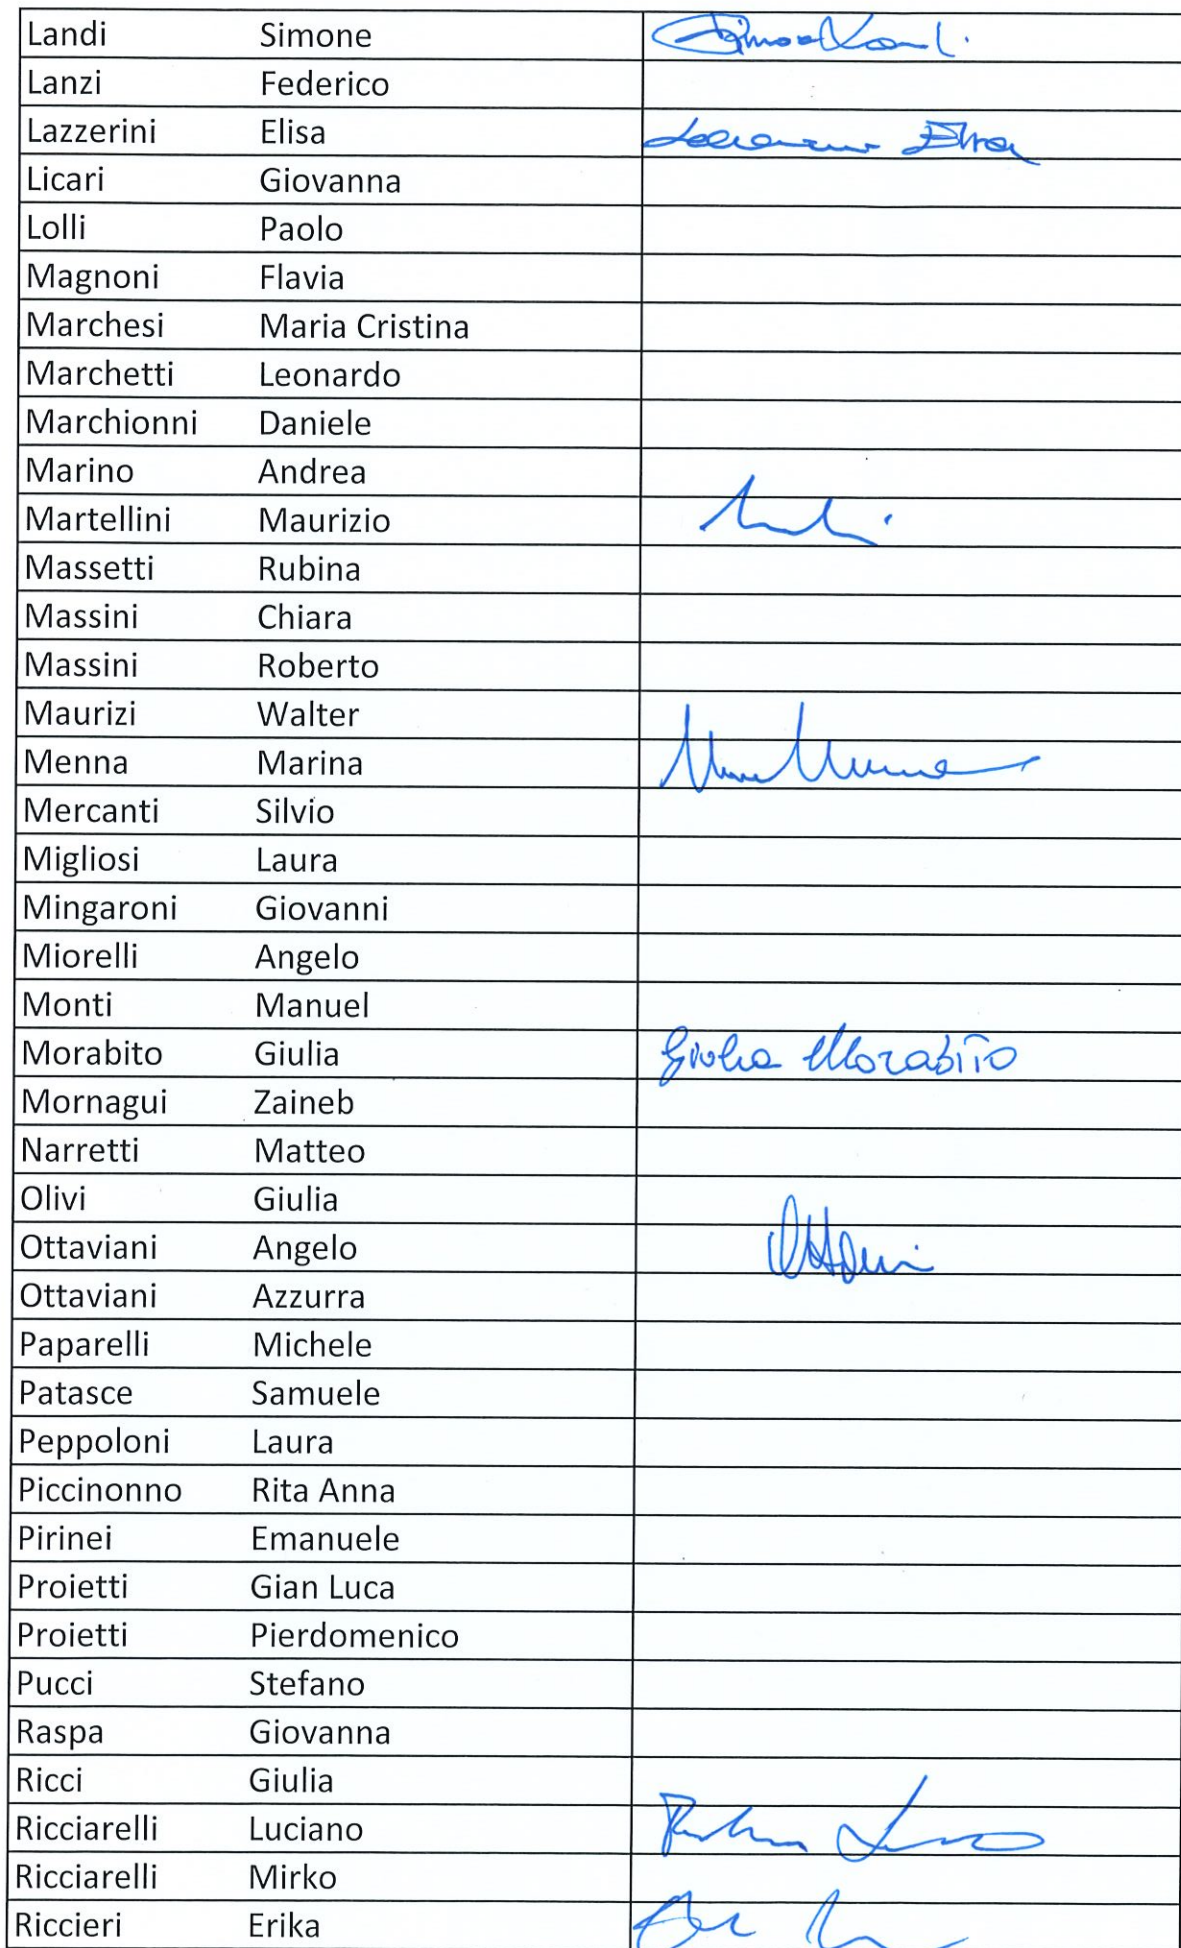 Landi Simone
Lanzi Federico
Lazzerini Elisa
Licari Giovanna
Lolli Paolo
Magnoni Flavia
Marchesi Maria Cristina
Marchetti Leonardo
Marchionni Daniele
Marino Andrea
Martellini Maurizio
Massetti Rubina
Massini Chiara
Massini Roberto
Maurizi Walter
Menna Marina
Mercanti Silvio
Migliosi Laura
Mingaroni Giovanni
Miorelli Angelo
Monti Manuel
Morabito Giulia Giulia Morabito
Mornagui Zaineb
Narretti Matteo
Olivi Giulia
Ottaviani Angelo
Ottaviani Azzurra
Paparelli Michele
Patasce Samuele
Peppoloni Laura
Piccinonno Rita Anna
Pirinei Emanuele
Proietti Gian Luca
Proietti Pierdomenico
Pucci Stefano
Raspa Giovanna
Ricci Giulia
Ricciarelli Luciano
Ricciarelli Mirko
Riccieri Erika